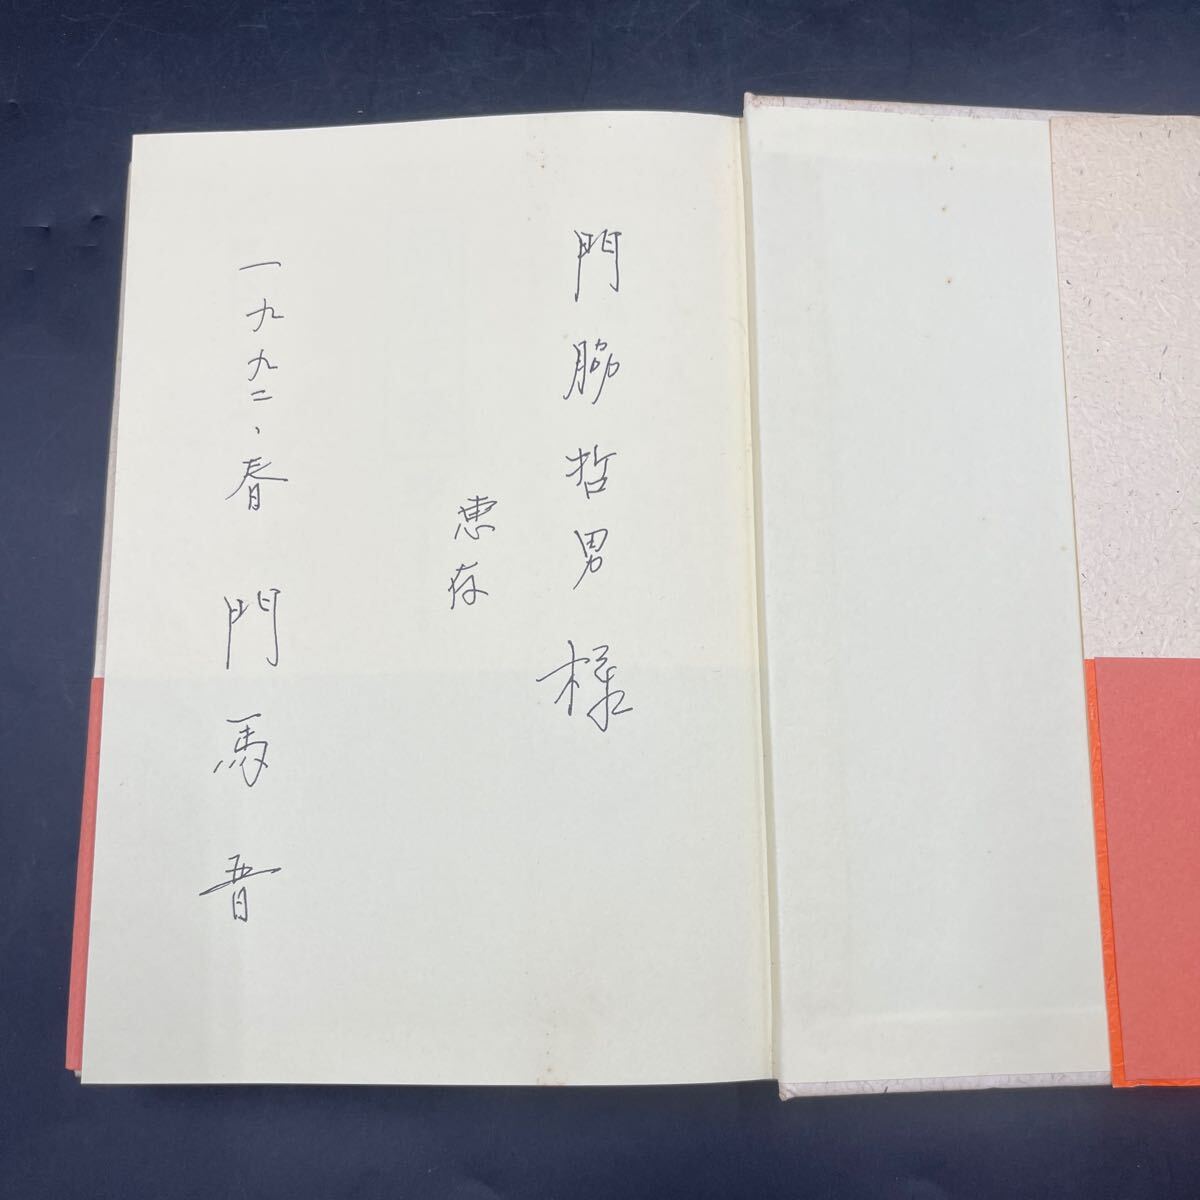 門脇哲男様
恵存
一九九二、春 門馬晋